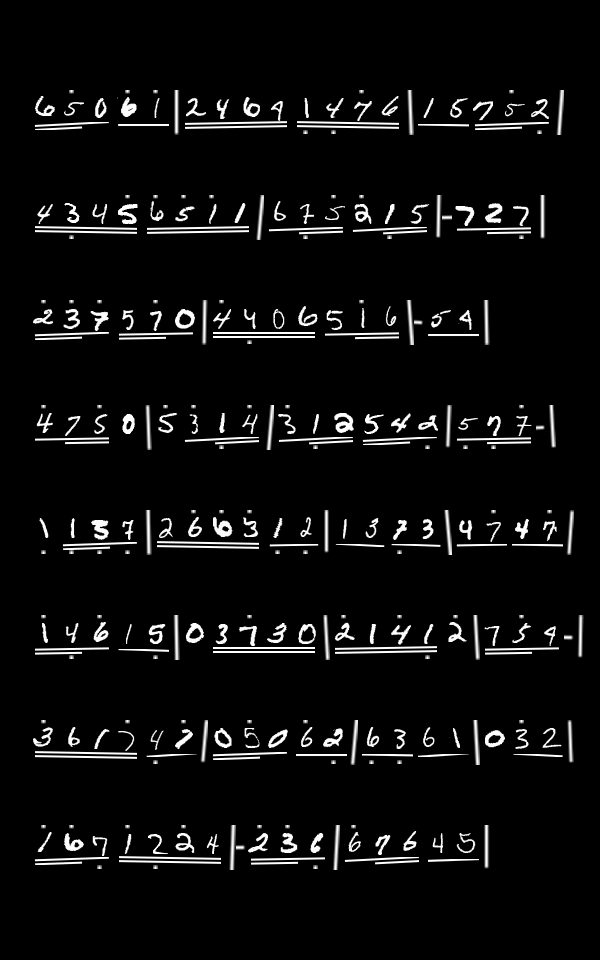 65061|24691476|15752
43456511|675215|-727
237570|4406516|-54
4750|5314|312542|577-
1157|266312|1373|4747
146155|03730|21412|754-
361747|05062|6361|032
1671224|-236|67645